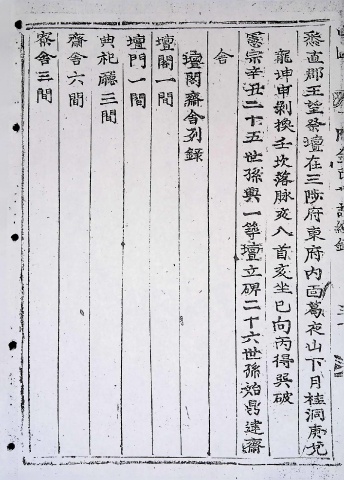 悉直郡王望祭壇在三陟府東府內面葛夜山下月桂洞庚兌
龍坤申剝換壬坎落脉亥入首亥坐巳向丙得巽破
憲宗辛丑二十五世孫興一等壇立碑二十六世孫始昌建齋
舍
壇閣齋舍列錄
壇閣一間
壇門一間
典祀廳三間
齋舍六間
寮舍三間